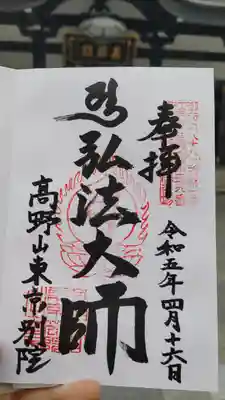 奉拝
令和五年四月十六日
弘法大師
高野山東京別院